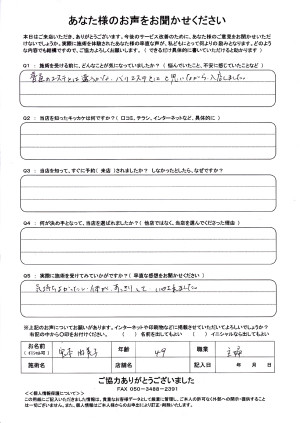 あなた様のお声をお聞かせください
本日はご来店いただき、ありがとうございます。今後のサービス改善のために、あなた様のご意見をお聞かせいただけないでしょうか。実際に施術を体験されたあなた様の率直な声が、私どもにとって何よりの励みとなります。どのような内容でも結構ですので、ご協力よろしくお願いします。(できるだけ具体的に書いていただけると助かります)
Q1 : 施術を受ける前に、どんなことが気になっていましたか?(悩んでいたこと、不安に感じていたことなど)
Q2 : 当店を知ったキッカケは何ですか?(口コミ、チラシ、インターネットなど、具体的に)
Q3 : 当店を知って、すぐに予約(来店)されましたか? しなかったとしたら、なぜですか?
Q4 : 何が決め手となって、当店を選ばれましたか?(他店ではなく、当店を選んでくださった理由)
Q5 : 実際に施術を受けてみていかがですか?(率直な感想をお聞かせください)
気持ちよかった。体が、すっきりして
※上記のお声についてお願いがあります。インターネットや印刷物などに掲載させていただいてよろしいでしょうか?
右の中から〇印をお付けください。( )名前を出してもよい ( )イニシャルなら出してもよい
お名前
(イニシャル可)
年齢 49 職業 主婦
施術名 店舗名 記入日 年 月 日
ご協力ありがとうございました
FAX 050-3488-2391
<<個人情報保護について>>